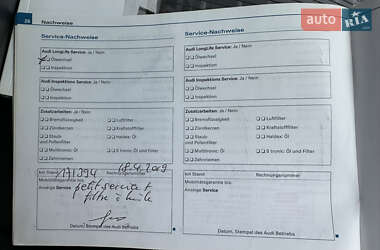 28 Nachweise
auto RIA.com
Service-Nachweise
Audi LongLife Service: Ja / Nein
Ölwechsel
Inspektion
Audi Inspektions Service: Ja / Nein
Ölwechsel
Inspektion
Zusatzarbeiten: Ja / Nein
Bremsflüssigkeit
Luftfilter
Zündkerzen
Kraftstofffilter
Staub- und Pollenfilter
Haldex Öl
Multitronic Öl
S tronic Öl und Filter
Zahnriemen
km Stand
Rechnungsnummer
171394
18.4.2019
Mobilitätsgarantie bis:
Anzeige Service
petit service +
filtre à huile
Datum, Stempel des Audi Betriebs
Service-Nachweise
Audi LongLife Service: Ja / Nein
Ölwechsel
Inspektion
Audi Inspektions Service: Ja / Nein
Ölwechsel
Inspektion
Zusatzarbeiten: Ja / Nein
Bremsflüssigkeit
Luftfilter
Zündkerzen
Kraftstofffilter
Staub- und Pollenfilter
Haldex Öl
Multitronic Öl
S tronic Öl und Filter
Zahnriemen
km Stand
Rechnungsnummer
Mobilitätsgarantie bis:
Anzeige Service
Datum, Stempel des Audi Betriebs